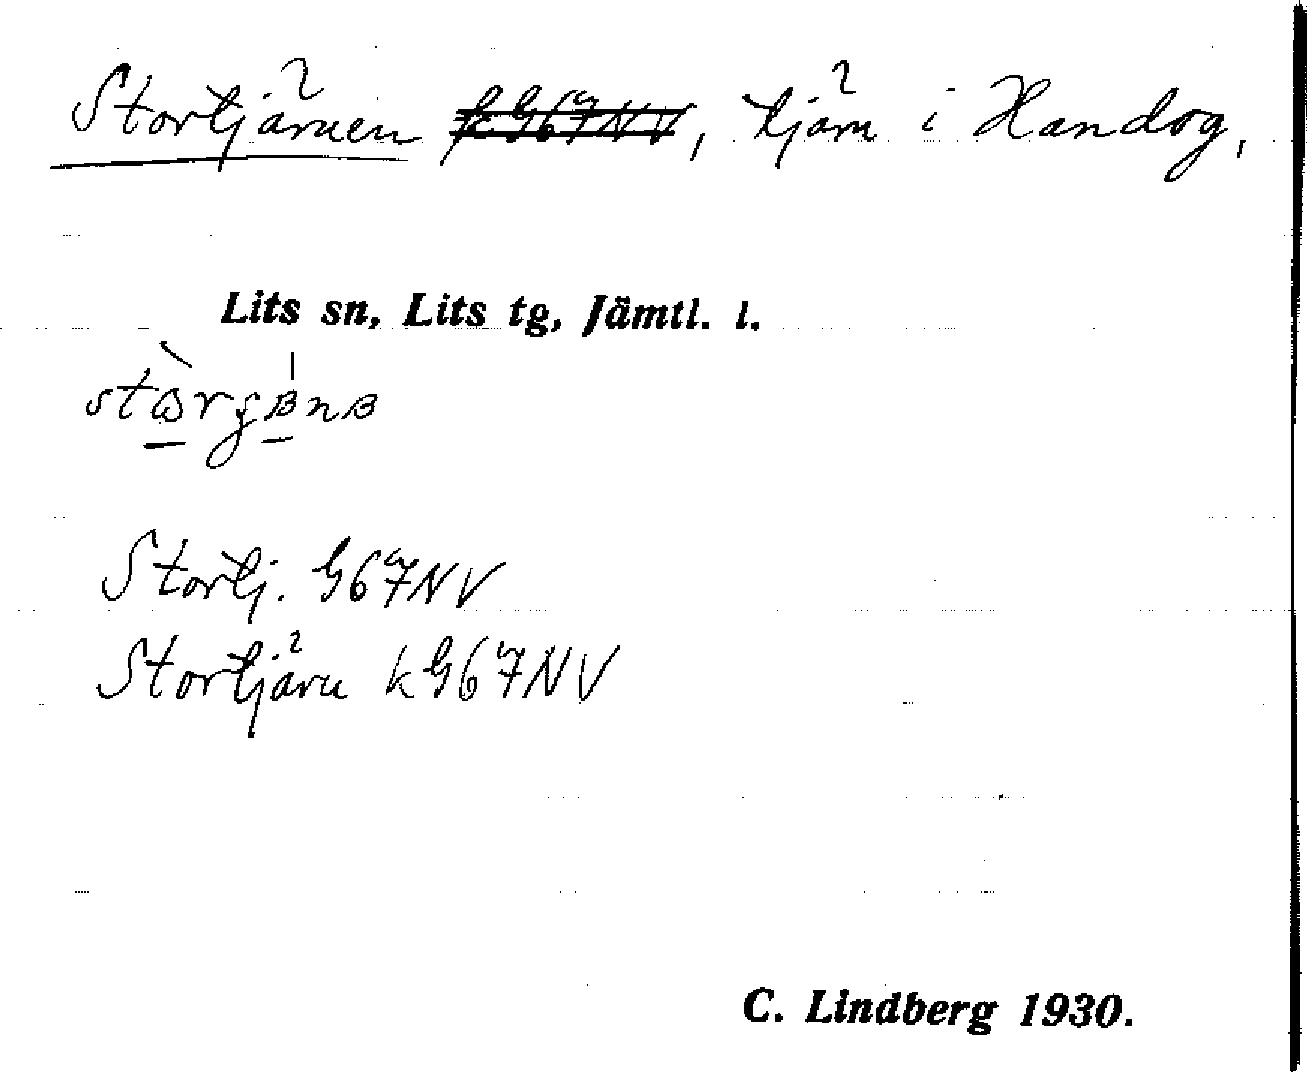 Stortjärnen k G67NV, tjärn i Handog,
Lits sn, Lits tg, Jämtl. l.
Stortj. G67NV
Stortjärn k G67NV
C. Lindberg 1930.